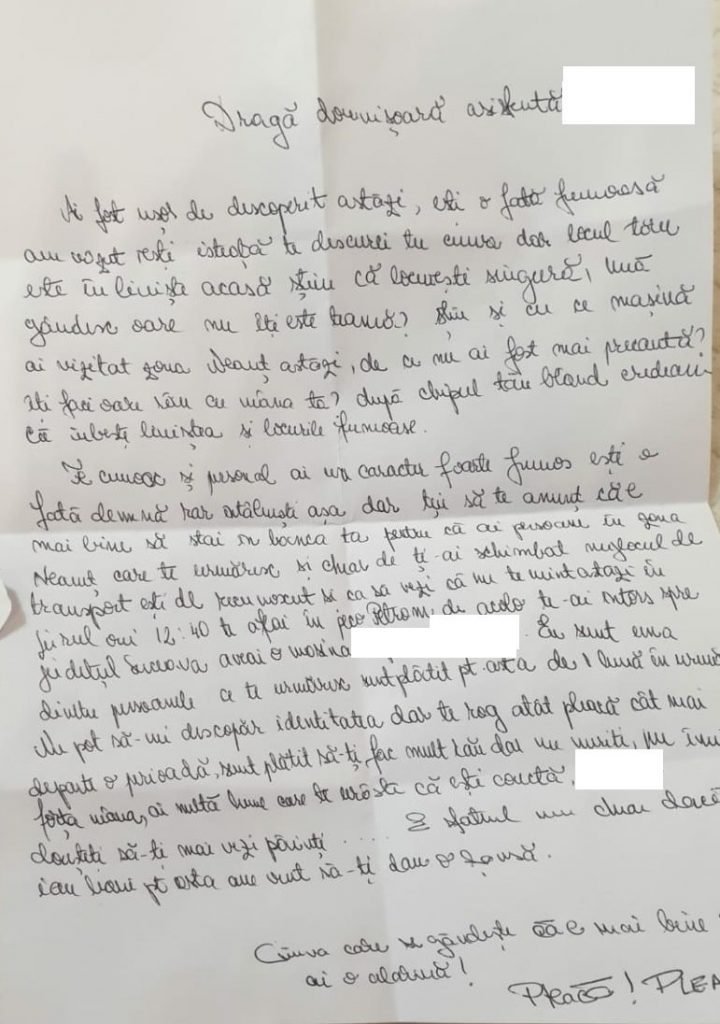 Dragă domnișoară asistentă
Ai fost ușor de descoperit astăzi, ești o fată frumoasă
am văzut ești isteață te descurci tu cumva dar locul tău
este în liniște acasă știu că locuiești singură, mă
gândesc oare nu îți este teamă? știu și cu ce mașină
ai vizitat zona Neamț astăzi, de ce nu ai fost mai precaută?
îți faci oare rău cu mâna ta? după chipul tău blând credeam
că iubești liniștea și locurile frumoase.
Te cunosc și personal ai un caracter foarte frumos ești o
fată demnă rar întâlnești așa dar țin să te anunț că e
mai bine să stai în banca ta pentru că ai persoane în zona
Neamț care te urmăresc și chiar de ți-ai schimbat mijlocul de
transport ești de recunoscut si ca sa vezi că nu te mint astazi în
jurul orei 12:40 te aflai în peco Petrom, de acolo te-ai intors spre
județul Suceava aveai o masina Eu sunt una
dintre persoanele ce te urmăresc sunt plătit pt asta de 1 lună în urmă
Nu pot să-mi descopăr identitatea dar te rog atât pleacă cât mai
departe o perioadă, sunt plătit să-ți fac mult rău dar nu meriti, nu îmi
forța mâna, ai multă lume care te urăste că ești corectă,
E sfatul meu chiar dacă
doresti să-ți mai vezi părinți ....
iau bani pt asta am vrut să-ți dau o șansă.
Cineva care se gândește că e mai bine
ai o alarmă!
Pleacă! PLEA